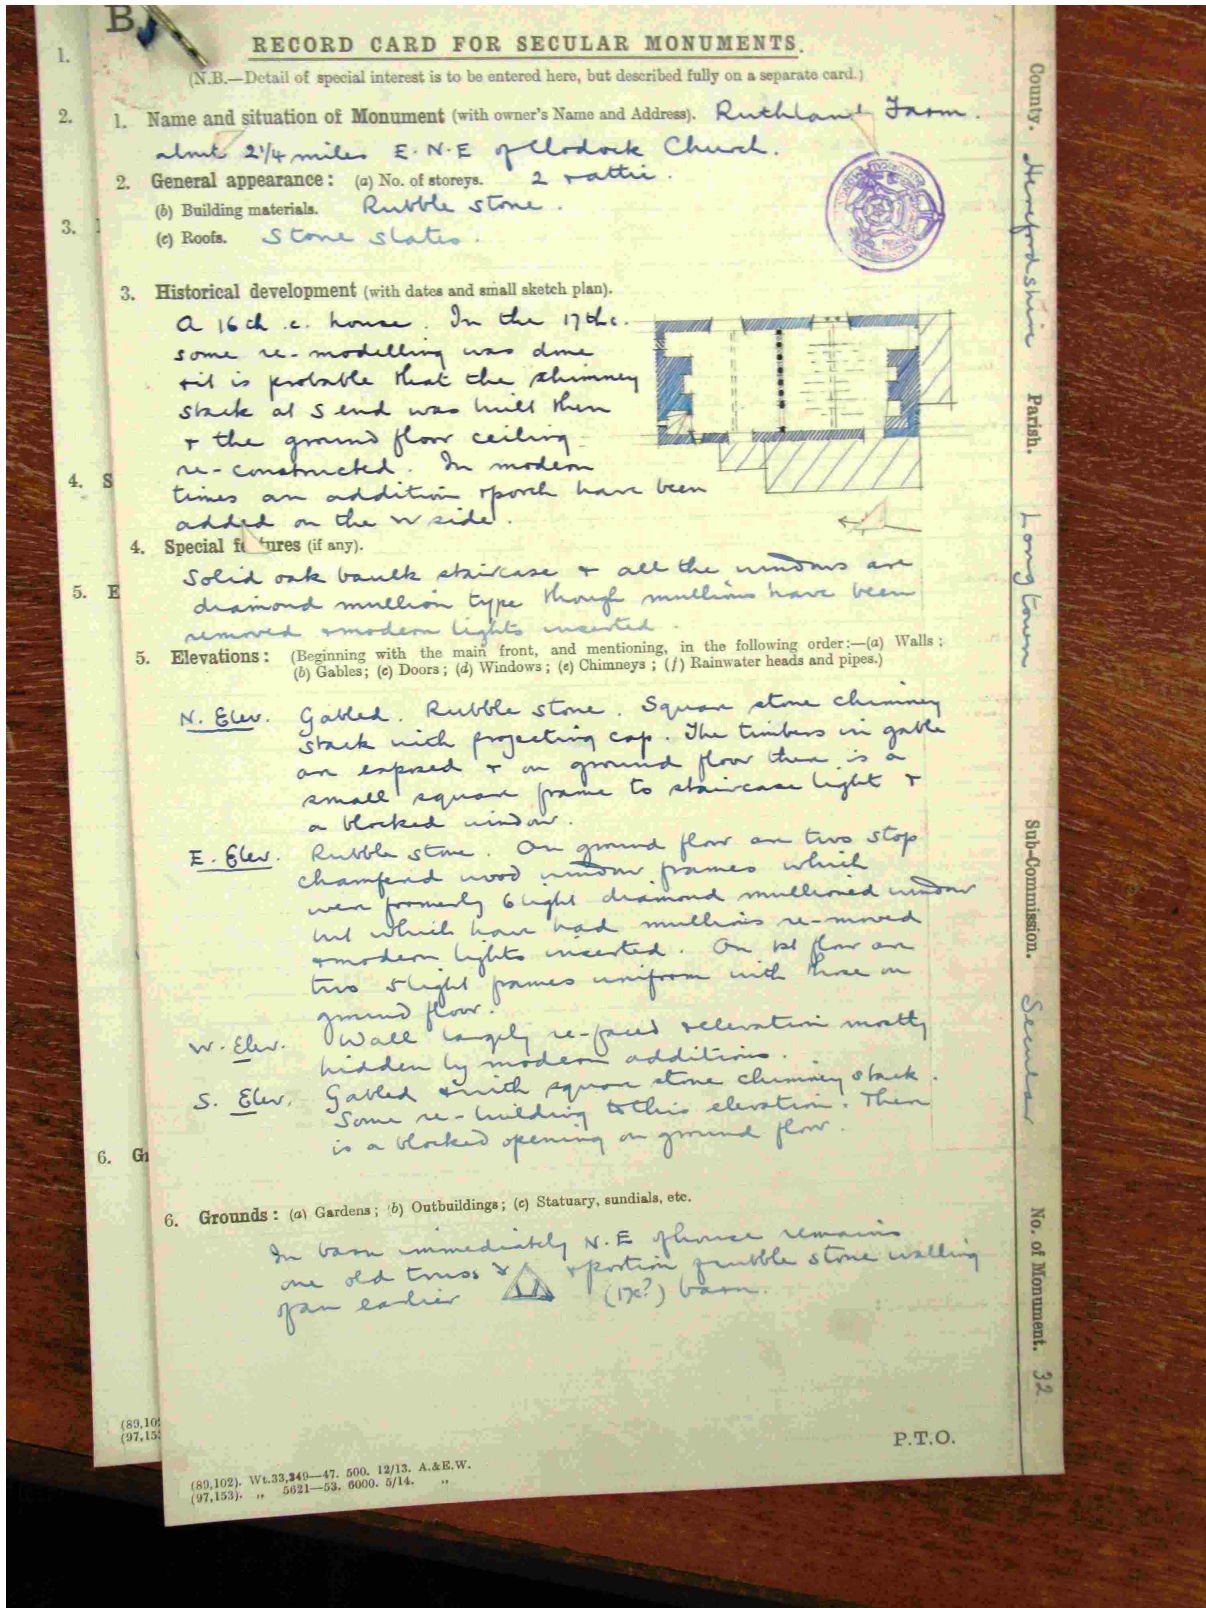 B
RECORD CARD FOR SECULAR MONUMENTS.
(N.B.—Detail of special interest is to be entered here, but described fully on a separate card.)
1.
2.
3.
4. S
5. E
6. Gr
1. Name and situation of Monument (with owner's Name and Address). Ruthland Farm.
about 2¼ miles E.N.E of Clodock Church.
2. General appearance: (a) No. of storeys. 2 + attic.
(b) Building materials. Rubble stone.
(c) Roofs. Stone slates.
3. Historical development (with dates and small sketch plan).
A 16th c. house. In the 17th c.
some re-modelling was done
+ it is probable that the chimney
stack at S end was built then
+ the ground floor ceiling
re-constructed. In modern
times an addition + porch have been
added on the W side.
4. Special features (if any).
Solid oak baulk staircase + all the windows are
diamond mullion type though mullions have been
removed + modern lights inserted.
5. Elevations: (Beginning with the main front, and mentioning, in the following order:—(a) Walls;
(b) Gables; (c) Doors; (d) Windows; (e) Chimneys; (f) Rainwater heads and pipes.)
N. Elev. Gabled. Rubble stone. Square stone chimney
stack with projecting cap. The timbers in gable
are exposed + on ground floor there is a
small square frame to staircase light +
a blocked window.
E. Elev. Rubble stone. On ground floor are two stop
chamfered wood window frames which
were formerly 6 light diamond mullioned window
but which have had mullions re-moved
+ modern lights inserted. On 1st floor are
two 5 light frames uniform with those on
ground floor.
W. Elev. Wall largely re-faced + elevation mostly
hidden by modern additions.
S. Elev. Gabled + with square stone chimney stack.
Some re-building to this elevation. There
is a blocked opening on ground floor.
6. Grounds: (a) Gardens; (b) Outbuildings; (c) Statuary, sundials, etc.
In barn immediately N.E of house remains
one old truss + portion of rubble stone walling
of an earlier (17c?) barn.
P.T.O.
(89,102). Wt.33,349—47. 500. 12/13. A.&E.W.
(97,153). „ 5621—53. 6000. 5/14. „
(89,10
(97,15
County. Herefordshire Parish. Longtown Sub-Commission. Secular No. of Monument. 32